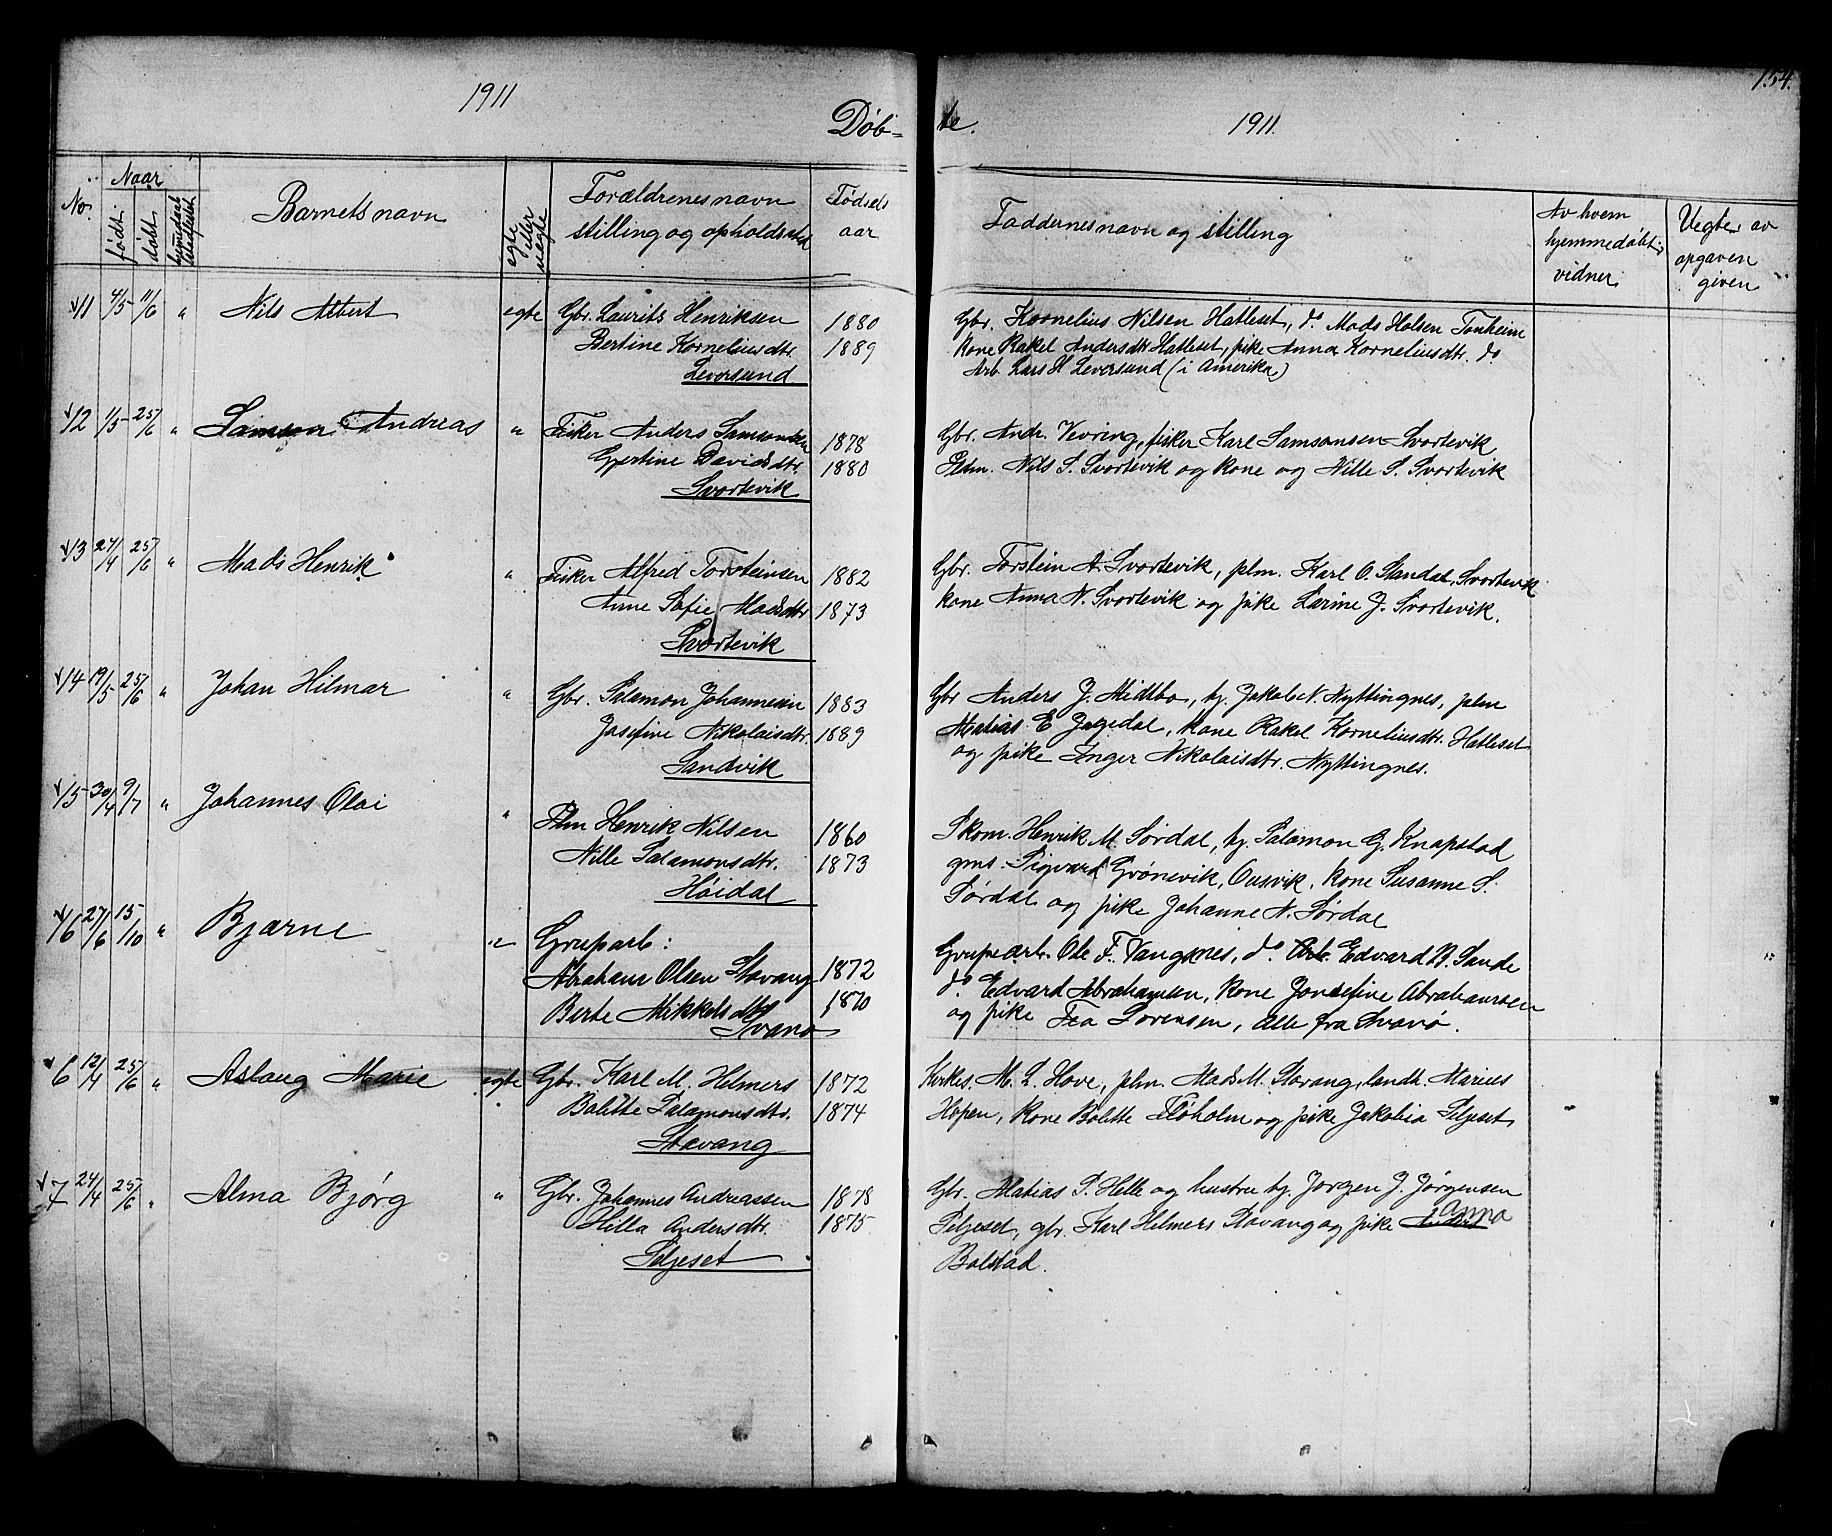 154.
1911
1911.
Døb-
te.
No.
Naar
født
døbt
Barnets navn
egte eller uegte
Forældrenes navn
stilling og opholdssted
Fødsels
aar
Faddernes navn og stilling
Av hvem
hjemmedøbt
vidner
Vegter av
opgaven
given
11 4/5 11/6 " Nils Albert egte Gbr. Laurits Henriksen 1880 Gbr. Kornelius Nilsen Hatleset, do Mads Holsen Tonheim
Bertine Korneliusdtr. 1889 Kone Rakel Andersdtr. Hatleset, pike Anna Korneliusdtr. do
Leversund Arb. Lars H Leversund (i Amerika)
12 1/5 25/6 " Samson Andreas " Fisker Anders Samsonsen 1878 Gbr. Andr. Vevring, fisker Karl Samsonsen Svortevik
Gjertine Davidsdtr. 1880 Plm. Nils S. Svortevik og kone og Nille S. Svortevik
Svortevik
13 27/4 25/6 " Mads Henrik " Fisker Alfred Torsteinsen 1882 Gbr. Torstein A. Svortevik, plm. Karl O. Standal, Svortevik
Anne Sofie Madsdtr. 1873 kone Anna N. Svortevik og pike Larine J. Svortevik.
Svortevik
14 19/5 25/6 " Johan Hilmar " Gbr. Salamon Johannesen 1883 Gbr Anders J. Midtbø, hj. Jakob N Nyttingnes, plm
Josefine Nikolaisdtr. 1889 Matias E Jygedal, kone Rakel Korneliusdtr. Hatleset
Sandvik og pike Inger Nikolaisdtr. Nyttingnes.
15 30/4 9/7 " Johannes Olai " Plm Henrik Nilsen 1860 Skom. Henrik M. Sørdal, hj. Salamon G. Knapstad
Nille Salamonsdtr. 1873 gms. Sigvard Grønevik, Ousvik, kone Susanne S.
Høidal Sørdal og pike Johanne N. Sørdal
16 27/6 15/10 " Bjarne " Gruparb: Grupearb. Ole F. Vangsnes, do Arb. Edvard B. Sande
Abraham Olsen Stavang 1872 do Edvard Abrahamsen, kone Jonsefine Abrahamsen
Berte Mikkelsdtr 1870 og pike Fea Sørensen, alle fra Svanø.
Svanø
6 12/4 25/6 " Aslaug Marie egte Gbr. Karl M. Helmers 1872 Kirkes. M. L. Hove, plm. Mads M. Stavang, landh. Marius
Bolette Salamonsdtr. 1874 Hopen, kone Bolette Fløholm og pike Jakobia Seljeset
Stavang
7 24/4 25/6 " Alma Bjørg " Gbr. Johannes Andreassen 1878 Gbr. Matias S. Helle og hustru hj. Jørgen J. Jørgensen
Hilla Andersdtr. 1875 Seljeset, gbr. Karl Helmers Stavang og pike Anna
Seljeset Bolstad.